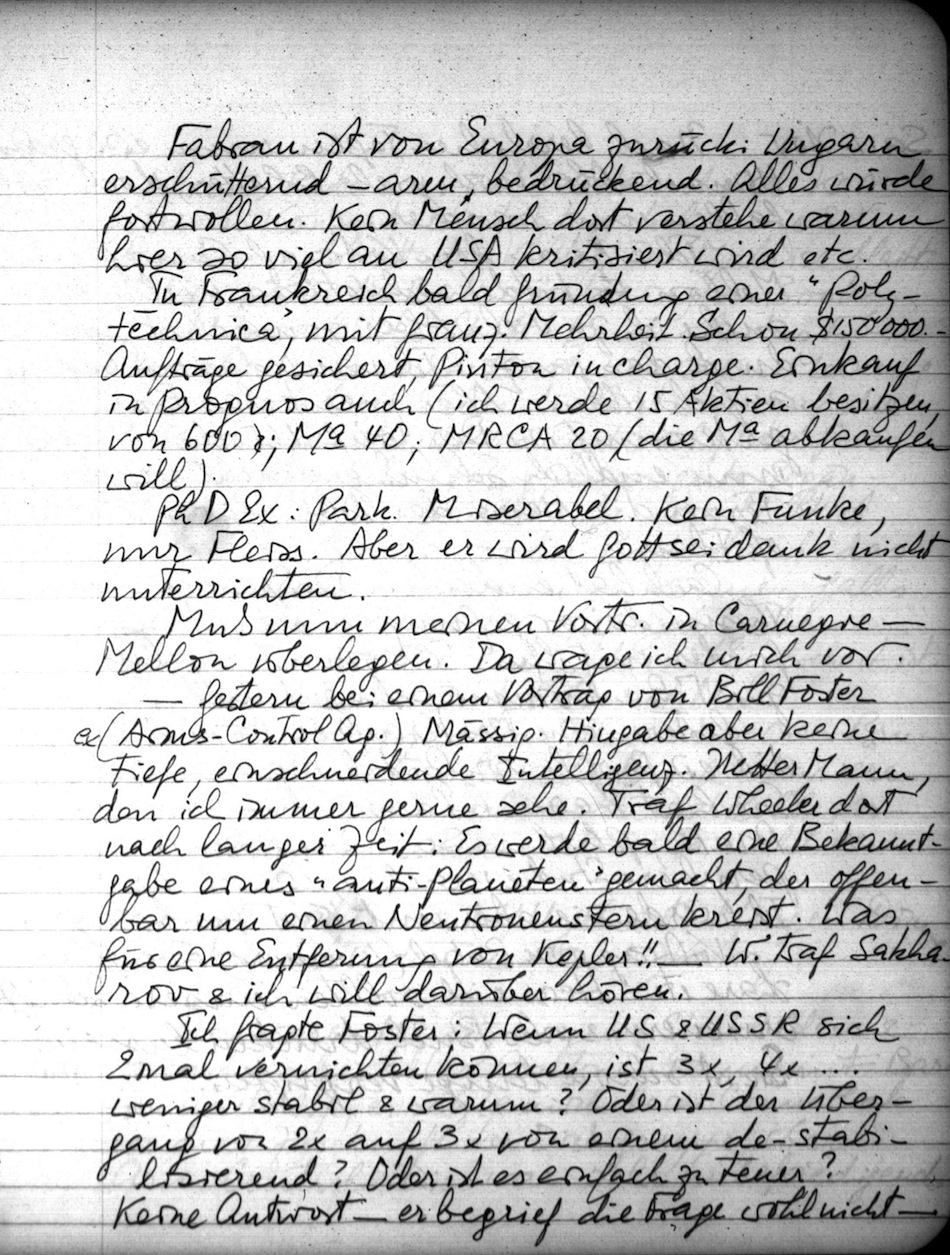 Fabian ist von Europa zurück: Ungarn
erschütternd – arm, bedrückend. Alles würde
fortwollen. Kein Mensch dort verstehe warum
hier so viel an USA kritisiert wird etc.
In Frankreich bald Gründung einer "Poly-
technica", mit franz. Mehrheit. Schon $150'000.-
Aufträge gesichert, Pinton in charge. Einkauf
in Prognos auch (ich werde 15 Aktien besitzen,
von 600); Ma 40; MRCA 20 (die Ma abkaufen
will).
Ph D Ex: Park. Miserabel. Kein Funke,
nur Fleiss. Aber er wird gottseidank nicht
unterrichten.
Muß nun meinen Vortr. in Carnegie –
Mellon überlegen. Da wage ich mich vor.
– Gestern bei einem Vortrag von Bill Foster
ex (Arms-Control Ag.) Mässig. Hingabe aber keine
tiefe, einschneidende Intelligenz. Netter Mann,
den ich immer gerne sehe. Traf Wheeler dort
nach langer Zeit: Es werde bald eine Bekannt-
gabe eines "anti-Planeten" gemacht, der offen-
bar um einen Neutronenstern kreist. Was
für eine Entfernung von Kepler!! — W. traf Sakha-
rov & ich will darüber hören.
Ich fragte Foster: Wenn US & USSR sich
2 mal vernichten können, ist 3x, 4x ...
weniger stabil & warum? Oder ist der Über-
gang von 2x auf 3x von einem de-stabi-
lisierend? Oder ist es einfach zu teuer?
Keine Antwort – er begrief die Frage wohl nicht –